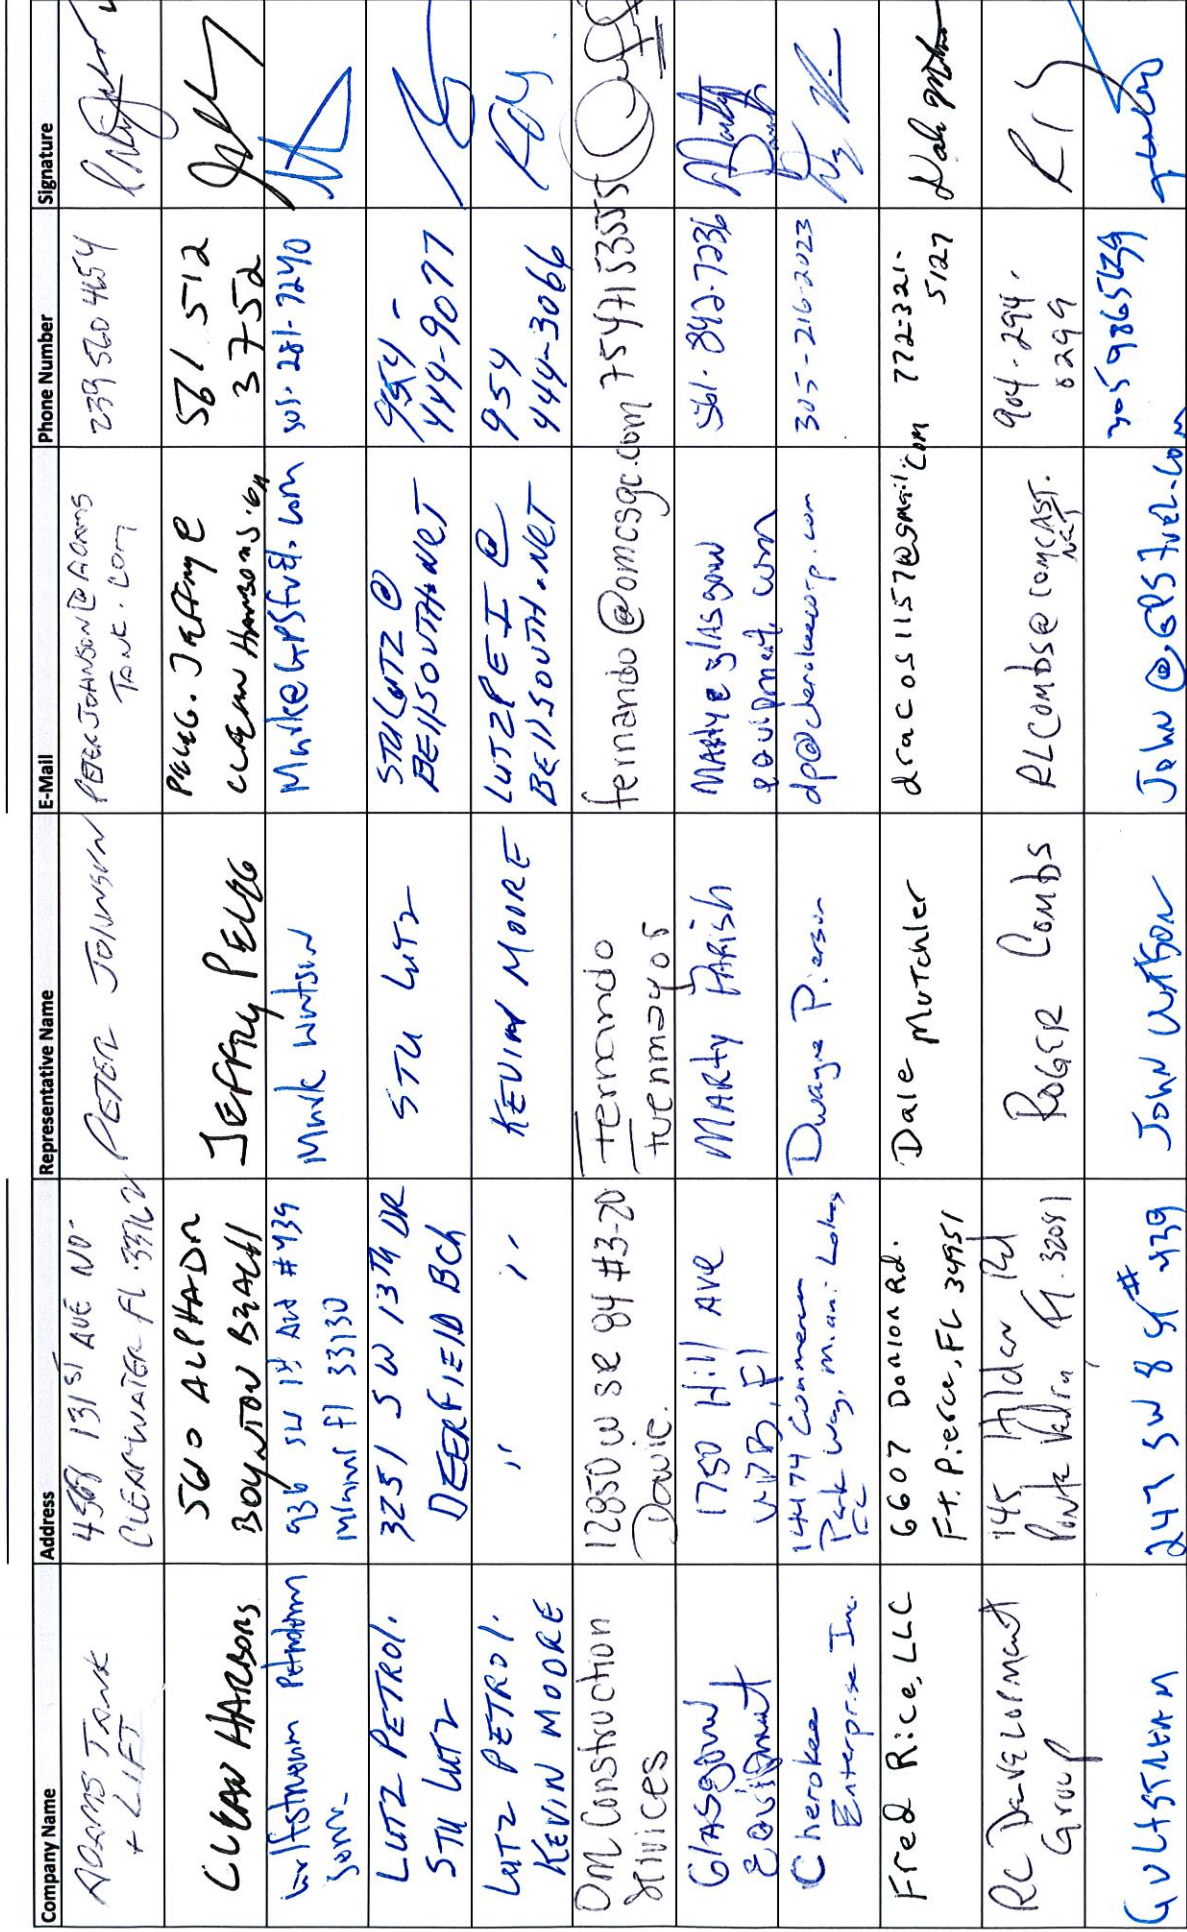 Company Name Address Representative Name E-Mail Phone Number Signature
ADAMS TANK
+ LIFT
4568 131st AVE NO-
CLEARWATER FL 33762
PETER JOHNSON
PETERJOHNSON@ADAMS
TANK.COM
239 560 4654
CLEAN HARBORS
560 ALPHA DR
BOYNTON BEACH
JEFFRY PELUG
PELUG.JEFFRY@
CLEAN HARBORS.COM
561 512
3752
Gulfstream Petroleum
936 SW 1st Ave #439
Miami Fl 33130
Mark Watson
Mark@GPSfuel.com
305-281-7240
LUTZ PETROL.
STU LUTZ
3251 SW 13TH DR
DEERFIELD BCH
STU LUTZ
STULUTZ@
BELLSOUTH.NET
954-
444-9077
LUTZ PETROL.
KEVIN MOORE
" "
KEVIN MOORE
LUTZPEI@
BELLSOUTH.NET
954
444-3066
OM Construction
Services
12850 W SR 84 #3-20
Davie.
Fernando
tuenmayor
fernando@omcsgc.com
7547153555
Glasgow
Equipment
1750 Hill Ave
WPB, Fl
Marty Parish
Marty@glasgow
equipment.com
561-842-7236
Cherokee
Enterprise Inc.
14474 Commerce
Park Way, Miami Lakes,
FL
Dwayne Pierson
dp@cherokeecorp.com
305-216-2023
Fred Rice, LLC
6607 Donlon Rd.
Ft. Pierce, FL 34951
Dale Mutchler
dracos1157@gmail.com
772-321-
5127
RC Development
Group
145 Hilden Rd
Ponte Vedra, Fl. 32081
ROGER Combs
RLCombs@comcast.
net
904-294-
0299
GULFSTREAM
247 SW 8 St # 439
JOHN WATSON
John@GPSFUEL.COM